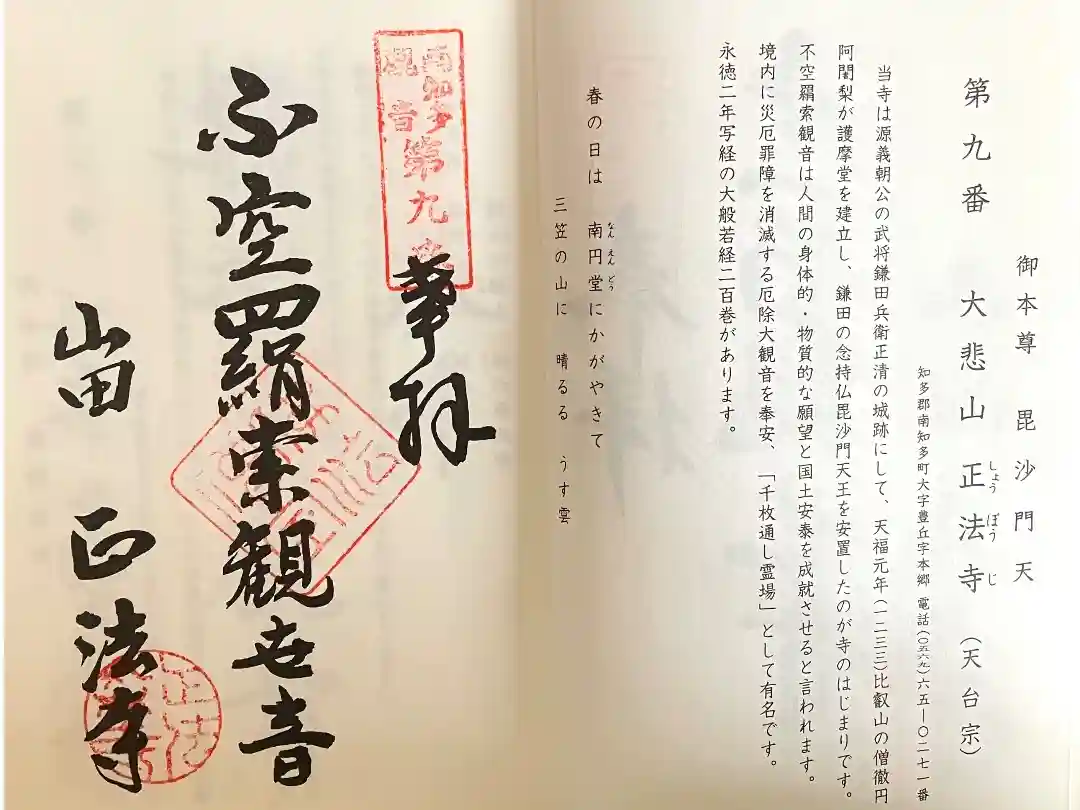 御本尊 毘沙門天
第九番 大悲山正法寺(天台宗)
しょうぼうじ
知多郡南知多町大字豊丘字本郷 電話(〇五六九)六五―〇二七一番
当寺は源義朝公の武将鎌田兵衛正清の城跡にして、天福元年(一二三三)比叡山の僧徹円
阿闍梨が護摩堂を建立し、鎌田の念持仏毘沙門天王を安置したのが寺のはじまりです。
不空羂索観音は人間の身体的・物質的な願望と国土安泰を成就させると言われます。
境内に災厄罪障を消滅する厄除大観音を奉安、「千枚通し霊場」として有名です。
永徳二年写経の大般若経二百巻があります。
春の日は 南円堂にかがやきて
なんえんどう
三笠の山に 晴るる うす雲
南知多
観音
第九番
奉拝
不空羂索観世音
山田 正法寺